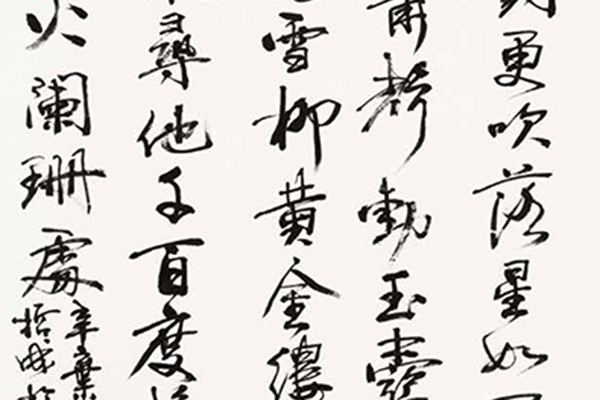 更吹落星如
聲動玉壺
雪柳黄金縷
尋他千百度
火闌珊處
辛棄